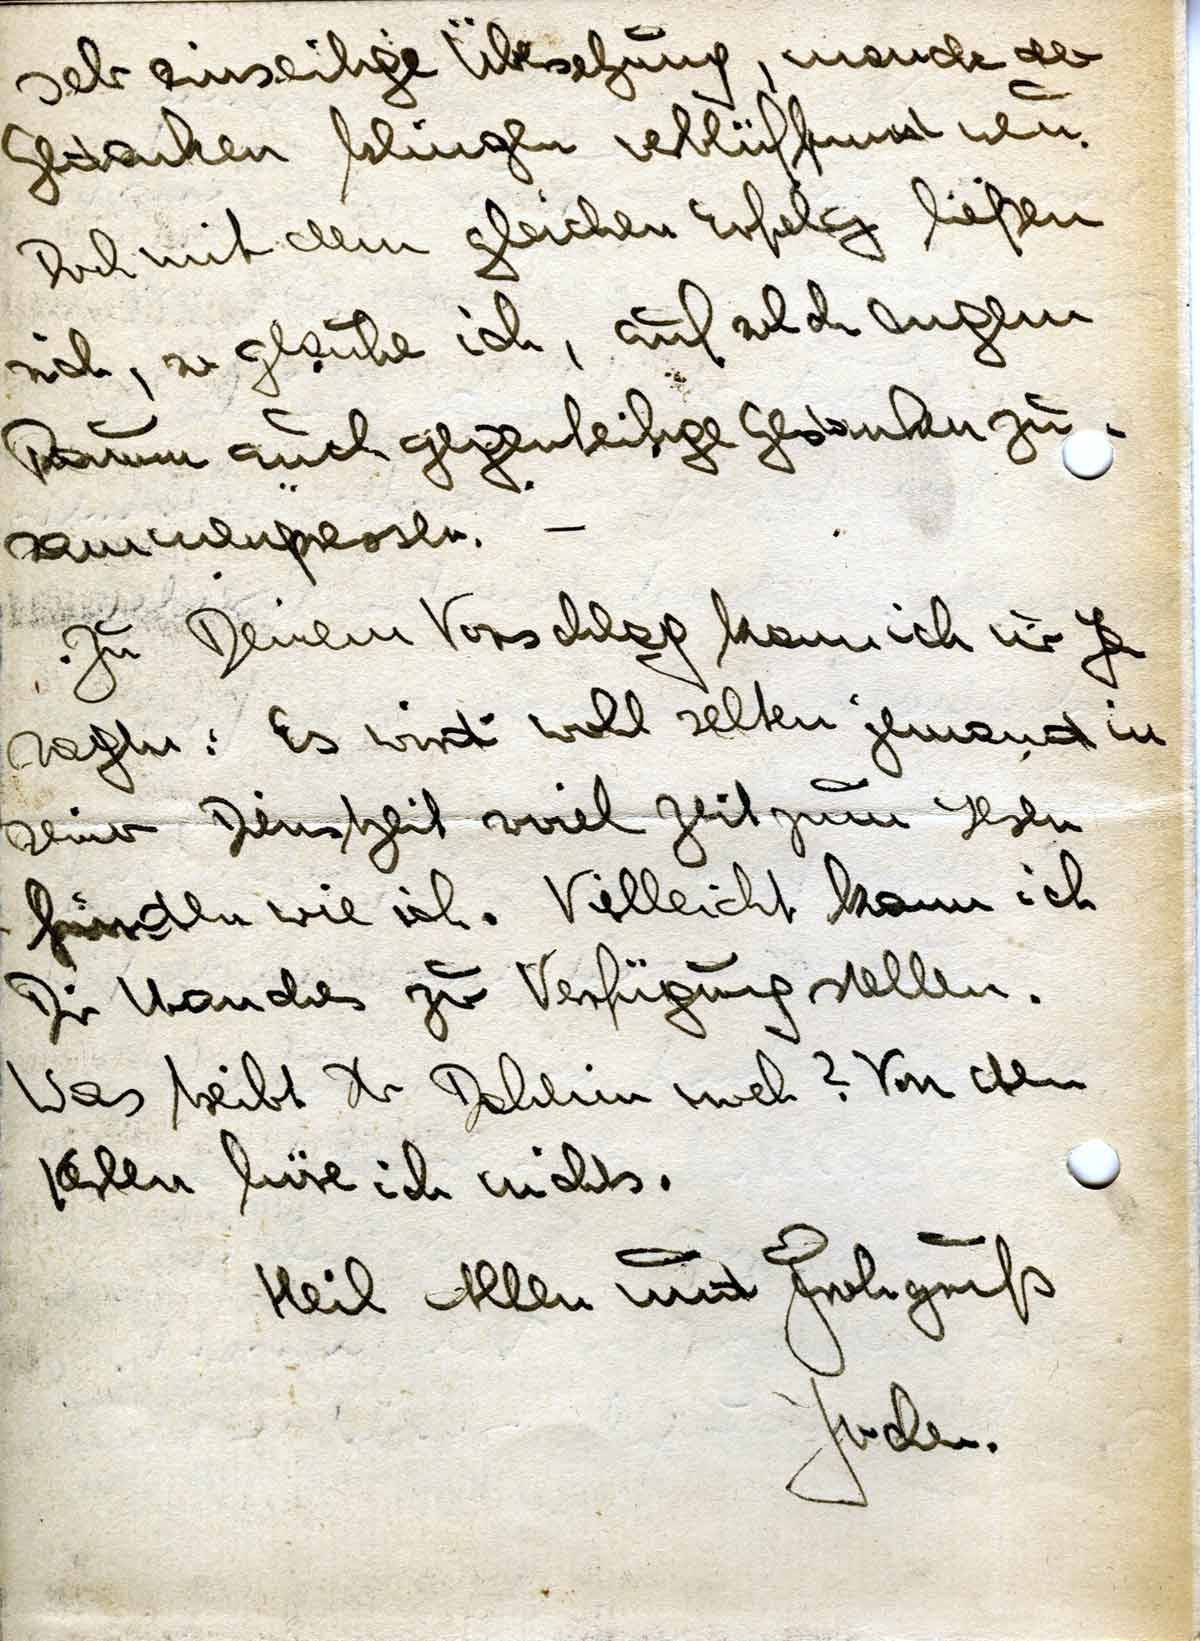 sehr einseitige Übersetzung, manche der
Gedanken klingen verblüffend neu.
Doch mit dem gleichen Erfolg ließen
sich, so glaube ich, auf solch engem
Raum auch gegenteilige Gedanken zu-
sammenpressen. —
Zu Deinem Vorschlag kann ich nur Ja
sagen: Es wird wohl selten jemand in
seiner Dienstzeit soviel Zeit zum Lesen
finden wie ich. Vielleicht kann ich
Dir Manches zur Verfügung stellen.
Was treibt Ihr Daheim noch? Von den
höre ich nichts.
Heil Allen und Frohgruß
Jochen.